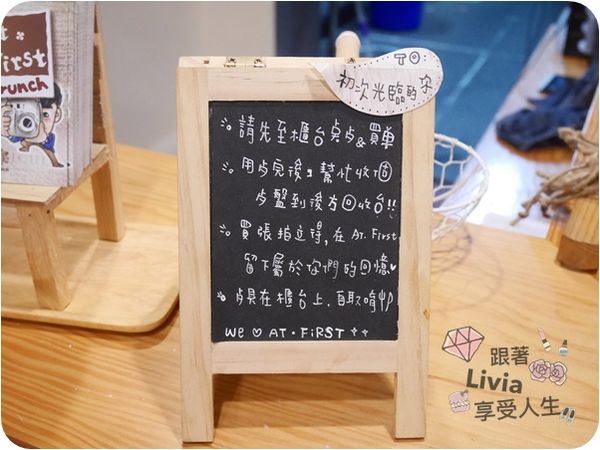 First
runch
TO:
初次光臨的你
請先至櫃台点歺&買单
用歺完後,幫忙收個
歺盤到後方回收台!!
買張拍立得,在AT.First
留下屬於你們的回憶♥
歺具在櫃台上.自取唷
WE ♡ AT·FiRST
跟著
Livia
享受人生